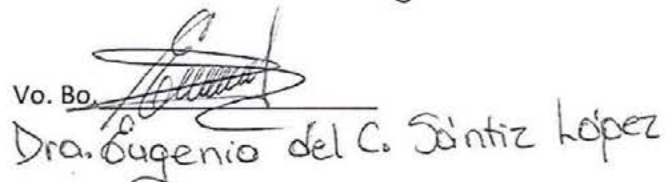 Vo. Bo.
Dra. Eugenia del C. Sántiz López